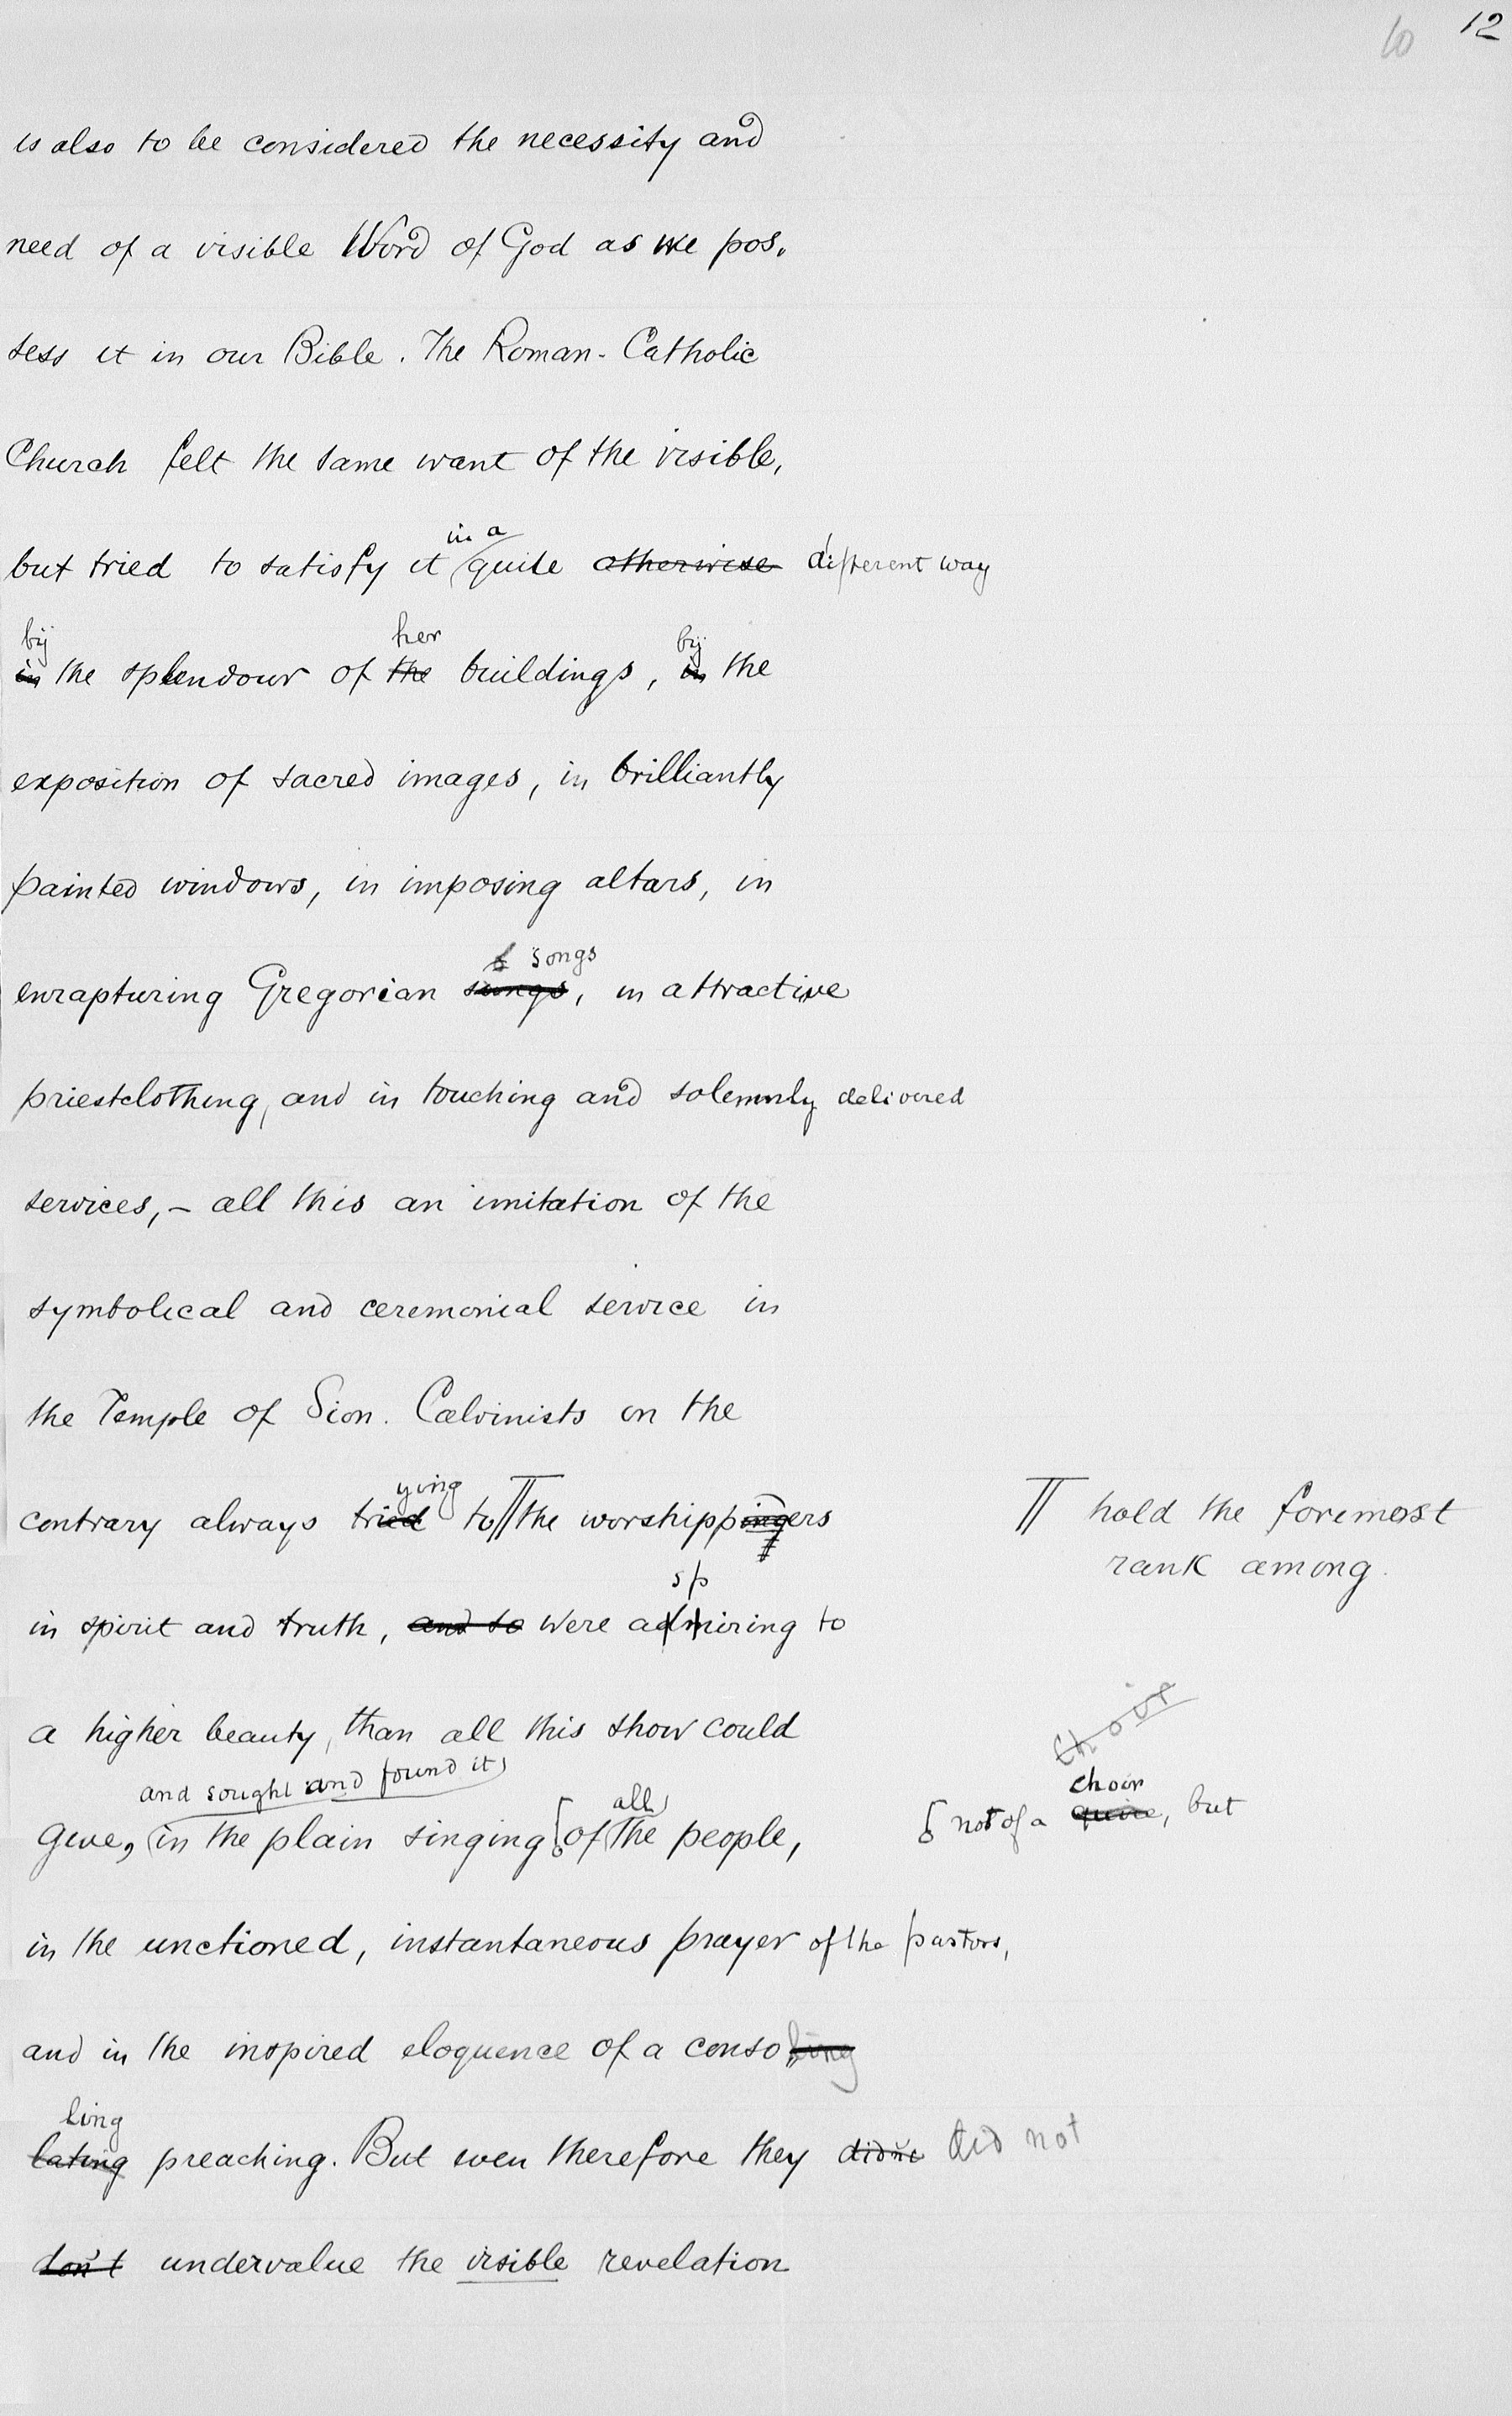 10 12
is also to be considered the necessity and
need of a visible Word of God as we pos-
sess it in our Bible. The Roman-Catholic
Church felt the same want of the visible,
in a
but tried to satisfy it quite otherwise different way
by her by
in the splendour of the buildings, in the
exposition of sacred images, in brilliantly
painted windows, in imposing altars, in
songs
enrapturing Gregorian songs, in attractive
priestclothing, and in touching and solemnly delivered
services, - all this an imitation of the
symbolical and ceremonial service in
the Temple of Sion. Calvinists on the
ying
contrary always tried to the worshippingers
hold the foremost
rank among.
sp
in spirit and truth, and so were admiring to
a higher beauty, than all this show could
and sought and found it
all
give, in the plain singing of the people,
choir
choir
not of a quire, but
in the unctioned, instantaneous prayer of the pastors,
and in the inspired eloquence of a consoling
ling
lating preaching. But even therefore they didn't did not
don't undervalue the visible revelation